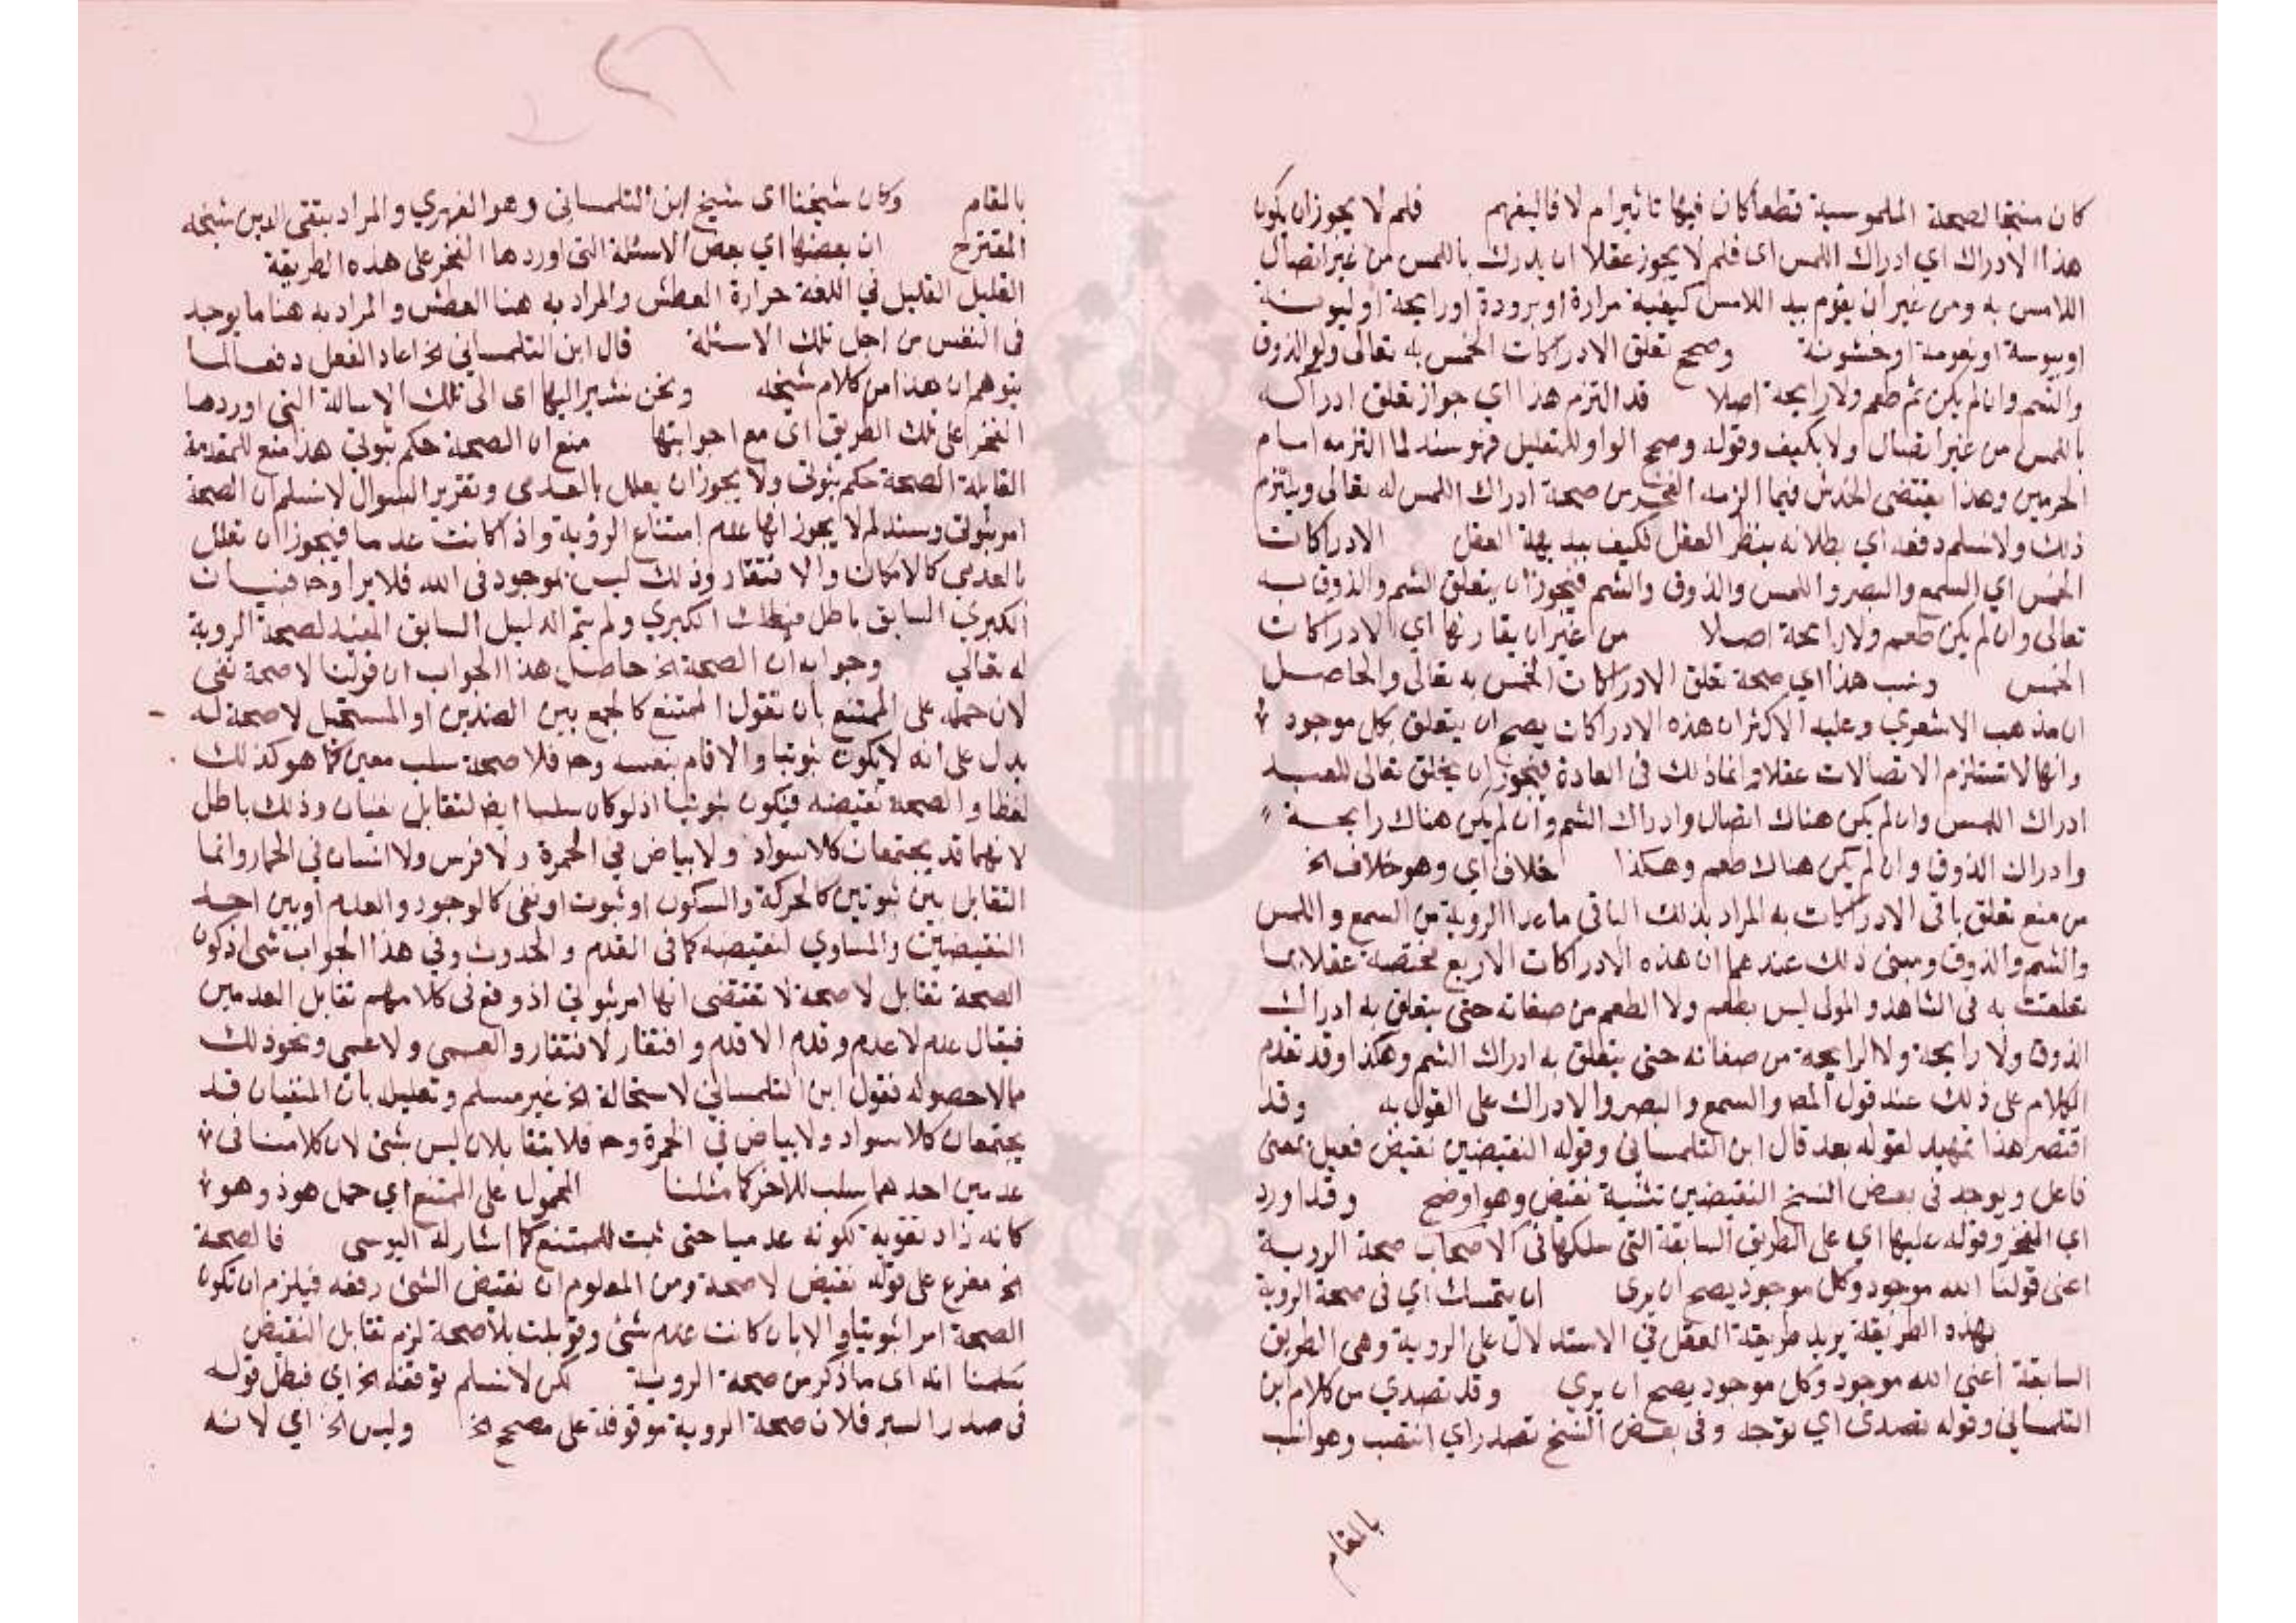 كان منتجا لصحة الملموسية قطعا كان فيها تاثير ام لا فاليفهم فلم لا يجوز ان يكون
هذا الادراك اي ادراك اللمس اى فلم لا يجوز عقلا ان يدرك باللمس من غير اتصال
اللامس به ومن غير ان يقوم بيد اللامس كيفية مرارة او برودة او رايحة او ليونة
او يبوسة او نعومة او خشونة وصح تعلق الادراكات الخمس به تعالى ولو الذوق
والشم وان لم يكن ثم طعم ولا رايحة اصلا قد التزم هذا اي جواز تعلق ادراكه
باللمس من غير اتصال ولا بكيف وقوله وصح الواو للتعليل فهو سند لما التزمه امام
الحرمين وهذا يقتضى الخدش فيما الزمه الفخر من صحة ادراك اللمس له تعالى ويلتزم
ذلك ولا نسلم دفعه اي بطلانه بنظر العقل فكيف ببديهة العقل الادراكات
الخمس اي السمع والبصر واللمس والذوق والشم فيجوز ان يتعلق الشم والذوق به
تعالى وان لم يكن طعم ولا رايحة اصلا من غير ان يقارنها اي الادراكات
الخمس ونسب هذا اي صحة تعلق الادراكات الخمس به تعالى والحاصل
ان مذهب الاشعري وعليه الاكثر ان هذه الادراكات يصح ان يتعلق بكل موجود
وانها لا تستلزم الاتصالات عقلا وانما ذلك فى العادة فيجوز ان يخلق تعالى للعبد
ادراك اللمس وان لم يكن هناك اتصال وادراك الشم وان لم يكن هناك رايحة
وادراك الذوق وان لم يكن هناك طعم وهكذا خلاف اي وهو خلاف الخ
من منع تعلق باقى الادراكات به المراد بذلك الباقى ما عدا الروية من السمع واللمس
والشم والذوق ومبنى ذلك عندهما ان هذه الادراكات الاربع مختصة عقلا بما
تعلقت به فى الشاهد والمولى ليس بطعم ولا الطعم من صفاته حتى يتعلق به ادراك
الذوق ولا رايحة ولا الرايحة من صفاته حتى يتعلق به ادراك الشم وهكذا وقد تقدم
الكلام على ذلك عند قول المص والسمع والبصر والادراك على القول به وقد
اقتصر هذا تمهيد لقوله بعد قال ابن التلمسانى وقوله النقيضين نقيض فعيل بمعنى
فاعل ويوجد فى بعض النسخ النقيضين تثنية نقيض وهو اوضح وقد اورد
اي الفخر وقوله عليها اي على الطريق السابقة التي سلكها فى الاصحاب صحة الروية
اعنى قولنا الله موجود وكل موجود يصح ان يرى ان يتمسك اي فى صحة الروية
بهذه الطريقة يريد طريقة العقل في الاستدلال على الروية وهى الطريق
السابقة اعنى الله موجود وكل موجود يصح ان يري وقد تصدي من كلام ابن
التلمسانى وقوله تصدى اي توجه وفى بعض النسخ تصدر اي انتصب وهو انسب
بالمقام
بالمقام وكان شيخنا اى شيخ ابن التلمسانى وهو الفهري والمراد بتقى الدين شيخه
المقترح ان بعضها اي بعض الاسئلة التى اوردها الفخر على هذه الطريقة
الغليل الغليل في اللغة حرارة العطش والمراد به هنا العطش والمراد به هنا ما يوجد
فى النفس من اجل تلك الاسئلة قال ابن التلمسانى الخ اعاد الفعل دفعا لما
يتوهم ان هذا من كلام شيخه ونحن نشير اليها اى الى تلك الاسالة التى اوردها
الفخر على تلك الطريق اى مع اجوابتها منع ان الصحة حكم ثبوتي هذا منع للمقدمة
القايلة الصحة حكم ثبوتى ولا يجوز ان يعلل بالعدمى وتقرير السوال لا نسلم ان الصحة
امر ثبوتى وسند لم لا يجوز انها عدم امتناع الرؤية واذا كانت عدما فيجوز ان تعلل
بالعدمي كالامكان والافتقار وذلك ليس بموجود فى الله فلا يرا وح فبيان
الكبري السابق باطل فبطلت الكبري ولم يتم الدليل السابق المفيد لصحة الروية
له تعالي وجوابه ان الصحة الخ حاصل هذا الجواب ان قولنا لا صحة نفى
لان حمله على الممتنع بان نقول الممتنع كالجمع بين الضدين او المستحيل لا صحة له
يدل على انه لا يكون ثبوتيا والا قام بنفسه وح فلا صحة سلب معين كما هو كذلك
لفظا والصحة نقيضه فيكون ثبوتيا اذ لو كان سلبا ايض لتقابل نفيان وذلك باطل
لانهما قد يجتمعان كلا سواد ولا بياض في الحمرة ولا فرس ولا انسان في الحمار وانما
التقابل بين ثبوتين كالحركة والسكون او ثبوت او نفى كالوجود والعدم او بين احد
النقيضين والمساوي لنقيضه كما فى القدم والحدوث وفي هذا الجواب شى اذ كون
الصحة تقابل لا صحة لا تقتضى انها امر ثبوتي اذ وقع فى كلامهم تقابل العدمين
فيقال عدم لا عدم وقدم الا قدم وافتقار لا افتقار والعمى ولا عمى ونحو ذلك
مما لا حصر له فقول ابن التلمسانى لاستحالة الخ غير مسلم وتعليل بان المنفيان قد
يجتمعان كلا سواد ولا بياض في الحمرة وح فلا يتقابلان ليس بشئ لان كلامنا فى
عدمين احدهما سلب للاخر كما مثلنا المحمول على الممتنع اي حمل هوذ وهو
كانه زاد تقوية لكونه عدميا حتى ثبت للممتنع كما اشار له اليوسى فالصحة
الخ مفرع على قوله نقيض لا صحة ومن المعلوم ان نقيض الشئ رفعه فيلزم ان تكون
الصحة امرا ثبوتيا والا بان كانت عدم شئ وقوبلت بلا صحة لزم تقابل النقيض
سلمنا انه اى ما ذكر من صحة الروية لكن لا نسلم توقفه الخ اي فبطل قوله
فى صدر السبر فلان صحة الروية موقوفة على مصحح الخ وليس الخ اي لانه